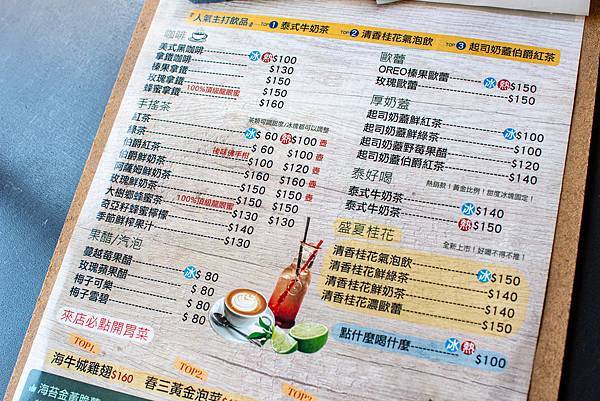 人氣主打飲品 TOP1 泰式牛奶茶 TOP2 清香桂花氣泡飲 TOP3 起司奶蓋伯爵紅茶
咖啡
冰 熱
美式黑咖啡 $100
拿鐵咖啡 $130
榛果拿鐵 $150
玫瑰拿鐵 $150
蜂蜜拿鐵 100%頂級龍眼蜜 $160
手搖茶
茶類可調甜度/冰塊都可以調整
紅茶 冰 $ 60 熱 $100 壺
綠茶 $ 60 $100 壺
紅柑茶 後味佛手柑 $100 $120 壺
伯爵鮮奶茶 $100 $120 壺
阿薩姆鮮奶茶 $160 $160 壺
玫瑰鮮奶茶 $150 $150 壺
大樹鄉蜂蜜茶 100%頂級龍眼蜜 $150 $150
奇亞籽蜂蜜檸檬 $130 $130
季節鮮榨果汁 $140
$130
果醋/汽泡
蔓越莓果醋 冰 $ 80
玫瑰蘋果醋 $ 80
梅子可樂 $ 80
梅子雪碧 $ 80
來店必點開胃菜
TOP1.
海牛城雞翅 $160
TOP2.
春三黃金泡菜
TOP3
海苔金黃脆薯
歐蕾
OREO榛果歐蕾 冰 熱 $150
玫瑰歐蕾 $150
厚奶蓋
起司奶蓋鮮紅茶 冰 $100
起司奶蓋鮮綠茶 $100
起司奶蓋野莓果醋 $120
起司奶蓋伯爵紅茶 $140
泰好喝
熱銷款！黃金比例！甜度冰塊固定！
泰式牛奶茶 冰 $140
泰式牛奶茶 熱 $150
盛夏桂花
全新上市！好喝不得不推！
清香桂花氣泡飲 冰 $150
清香桂花鮮綠茶 $140
清香桂花鮮奶茶 $140
清香桂花濃歐蕾 $150
點什麼喝什麼 冰 熱 $100